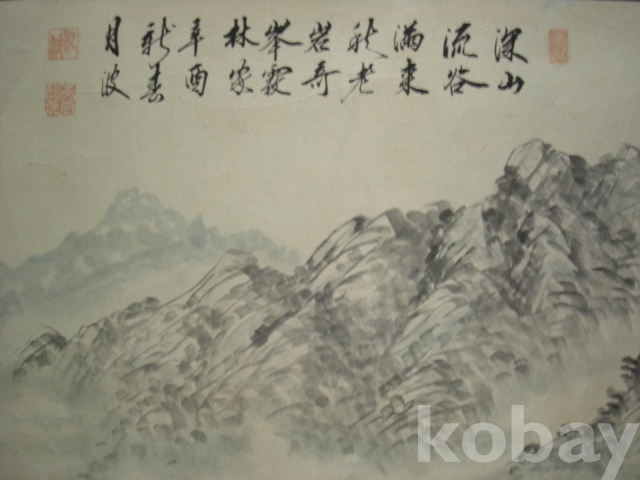 深山
流谷
滿來
秋老
岩奇
峯
林家
辛酉
新春
月波
kobay